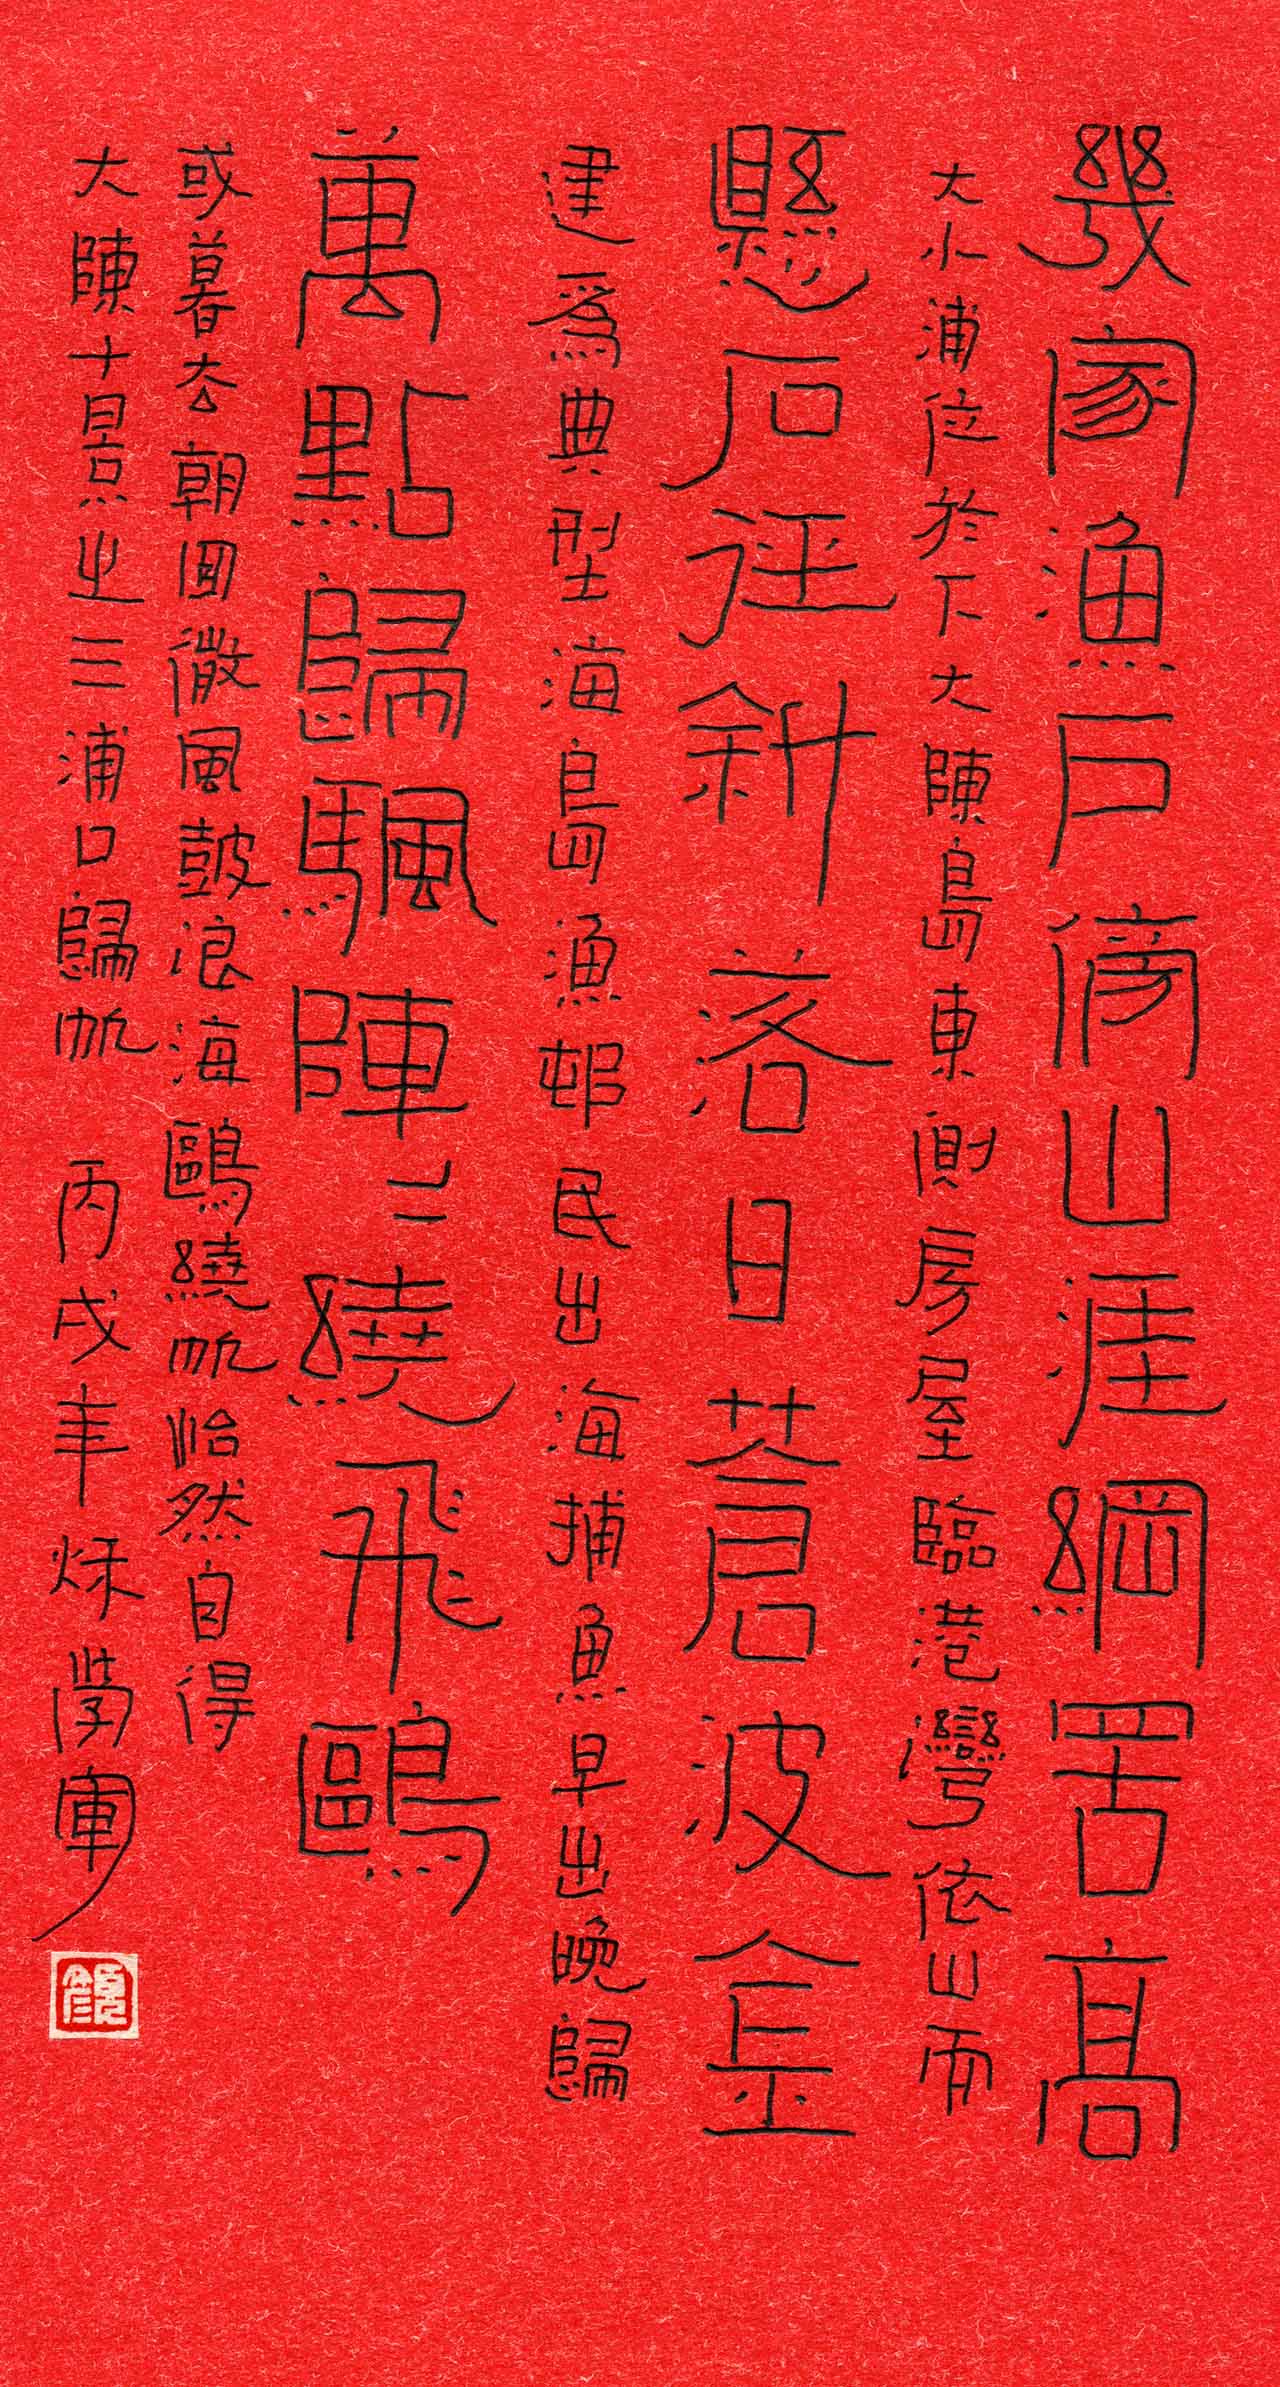 幾家漁戶傍山涯綱罟高
大小浦位於下大陳島東側房屋臨港灣依山而
懸石徑斜落日蒼波金
建爲典型海島漁邨民出海捕魚早出晚歸
萬點歸颿陣〻繞飛鷗
或暮去朝回微風鼓浪海鷗繞帆怡然自得
大陳十景之三浦口歸帆 丙戌年秌學軍
顏